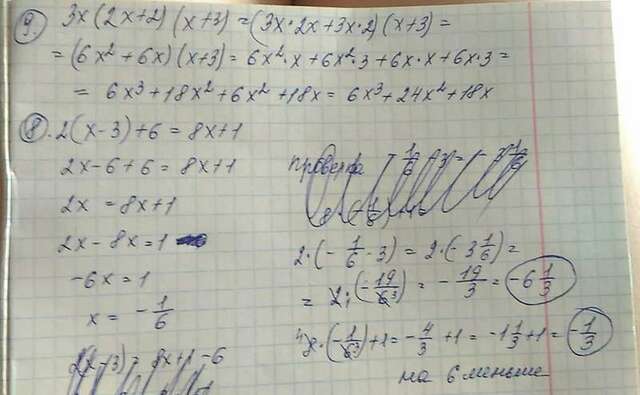 9. 3x(2x+2)(x+3) = (3x·2x+3x·2)(x+3) =
= (6x²+6x)(x+3) = 6x²·x+6x²·3+6x·x+6x·3 =
= 6x³+18x²+6x²+18x = 6x³+24x²+18x
8. 2(x-3)+6 = 8x+1
2x-6+6 = 8x+1
2x = 8x+1
2x-8x = 1
-6x = 1
x = -1/6
проверка
2·(-1/6-3) = 2·(-3 1/6) =
= 2·(-19/6) = -19/3 = -6 1/3
8·(-1/6)+1 = -4/3+1 = -1 1/3+1 = -1/3
на 6 меньше